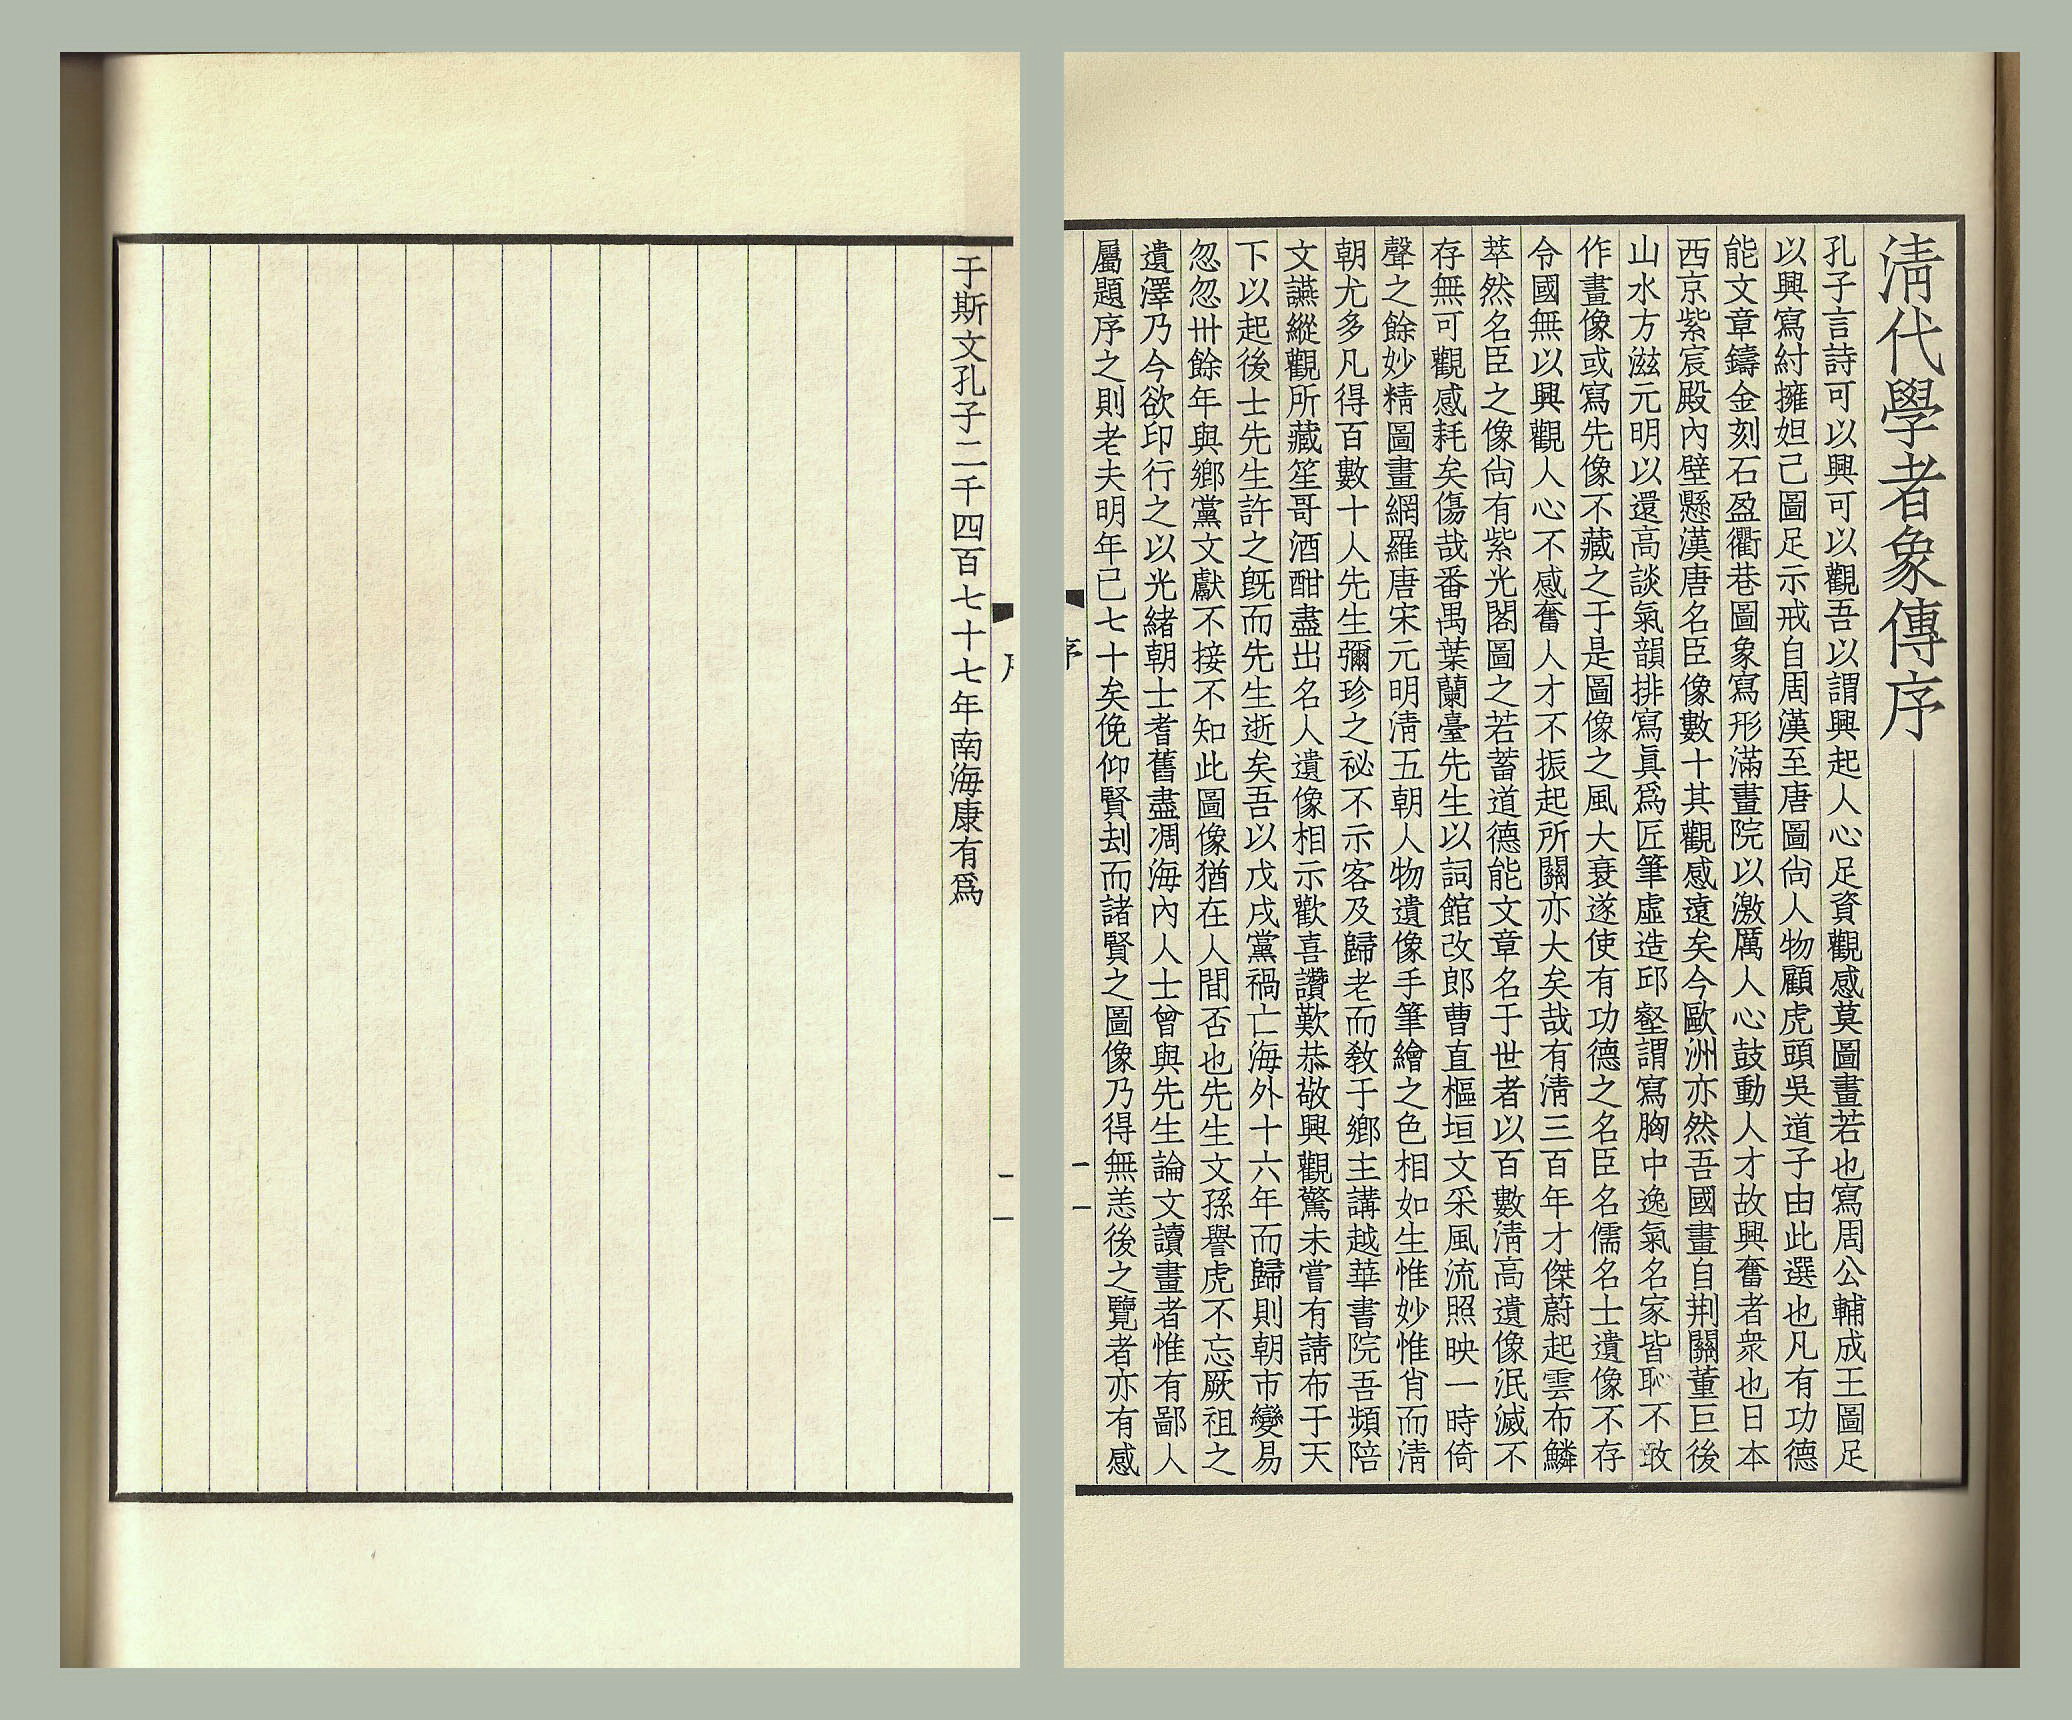 清代學者象傳序
孔子言詩可以興可以觀吾以謂興起人心足資觀感莫圖畫若也寫周公輔成王圖足
以興寫紂擁妲己圖足示戒自周漢至唐圖尙人物顧虎頭吳道子由此選也凡有功德
能文章鑄金刻石盈衢巷圖象寫形滿畫院以激厲人心鼓動人才故興奮者衆也日本
西京紫宸殿內壁懸漢唐名臣像數十其觀感遠矣今歐洲亦然吾國畫自荆關董巨後
山水方滋元明以還高談氣韻排寫眞爲匠筆虛造邱壑謂寫胸中逸氣名家皆恥不敢
作畫像或寫先像不藏之于是圖像之風大衰遂使有功德之名臣名儒名士遺像不存
令國無以興觀人心不感奮人才不振起所關亦大矣哉有淸三百年才傑蔚起雲布鱗
萃然名臣之像尙有紫光閣圖之若蓄道德能文章名于世者以百數淸高遺像泯滅不
存無可觀感耗矣傷哉番禺葉蘭臺先生以詞館改郎曹直樞垣文采風流照映一時倚
聲之餘妙精圖畫網羅唐宋元明淸五朝人物遺像手筆繪之色相如生惟妙惟肖而淸
朝尤多凡得百數十人先生彌珍之祕不示客及歸老而敎于鄉主講越華書院吾頻陪
文讌縱觀所藏笙哥酒酣盡出名人遺像相示歡喜讚歎恭敬興觀驚未嘗有請布于天
下以起後士先生許之旣而先生逝矣吾以戊戌黨禍亡海外十六年而歸則朝市變易
忽忽卅餘年與鄉黨文獻不接不知此圖像猶在人間否也先生文孫譽虎不忘厥祖之
遺澤乃今欲印行之以光緖朝士耆舊盡凋海內人士曾與先生論文讀畫者惟有鄙人
屬題序之則老夫明年已七十矣俛仰賢刦而諸賢之圖像乃得無恙後之覽者亦有感
序
一
于斯文孔子二千四百七十七年南海康有爲
一